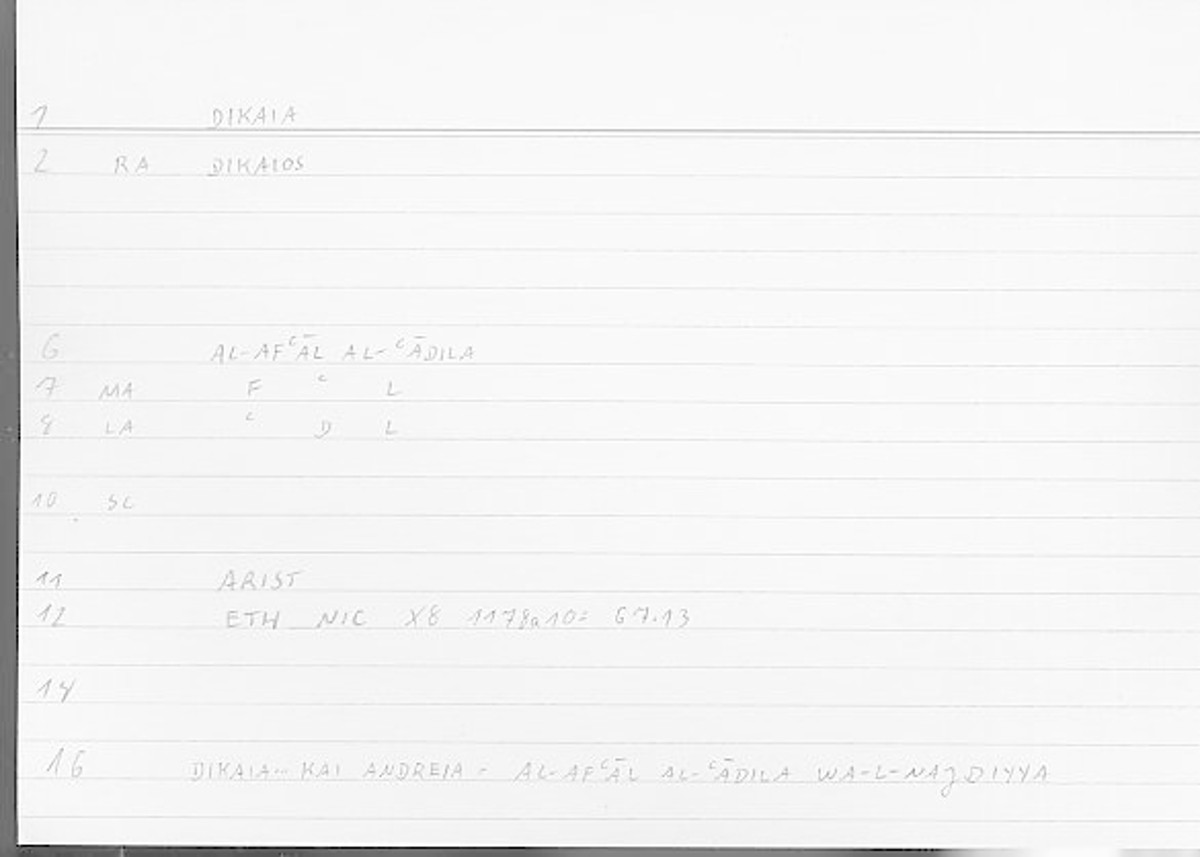 1 DIKAIA
2 RA DIKAIOS
6 AL-AFʿĀL AL-ʿĀDILA
7 MA F ʿ L
8 LA ʿ D L
10 SC
11 ARIST
12 ETH NIC X8 1178a10= 67.13
14
16 DIKAIA-- KAI ANDREIA - AL-AFʿĀL AL-ʿĀDILA WA-L-NAJDIYYA